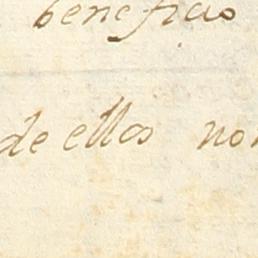 beneficio
de ellos no